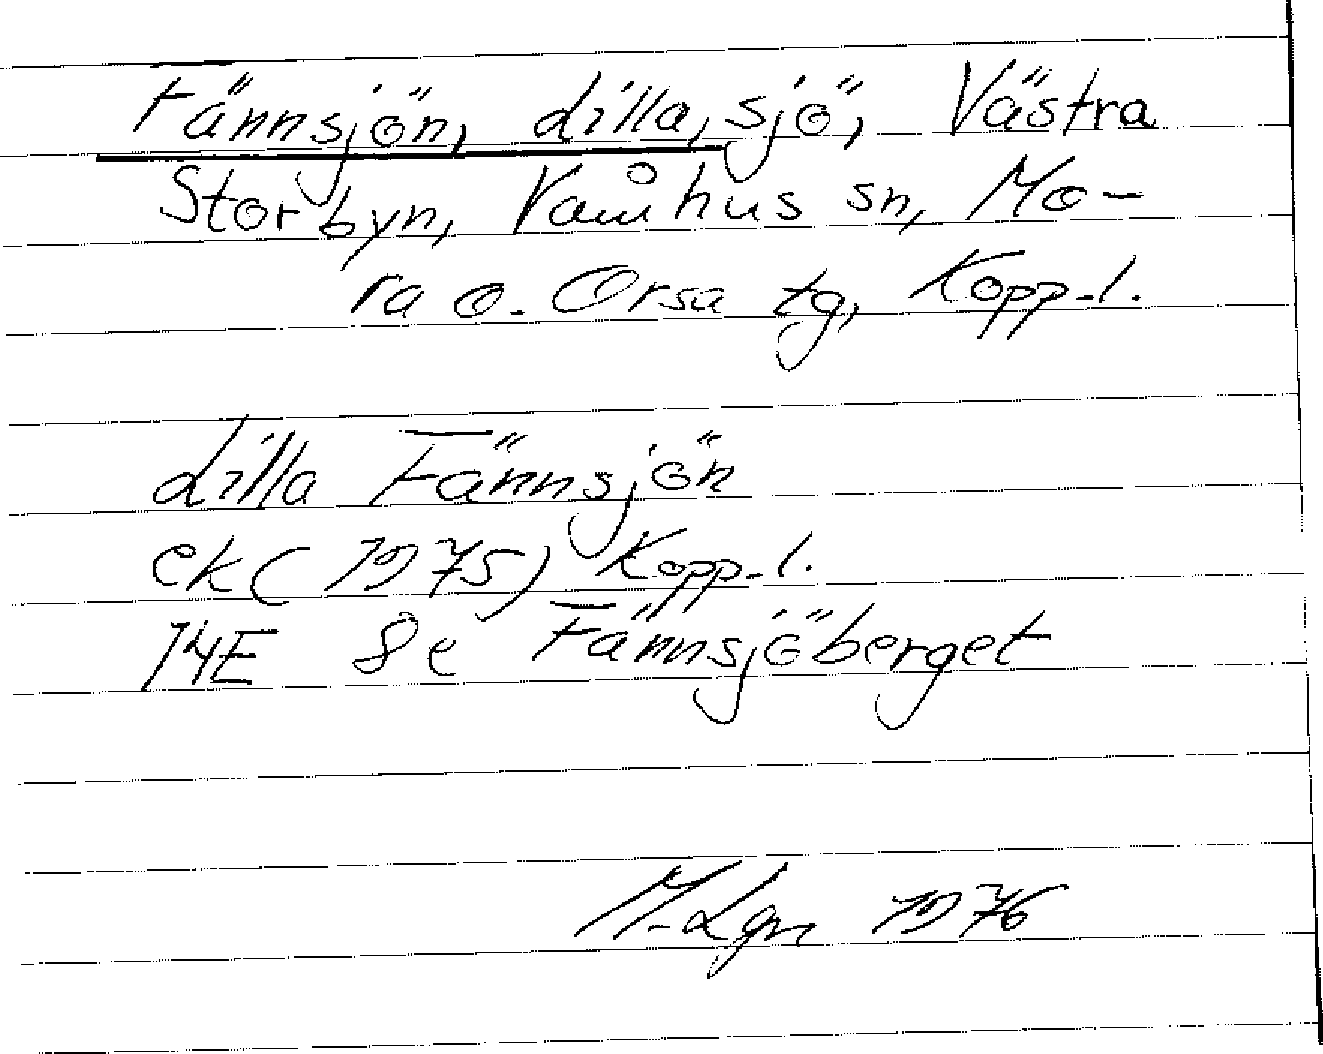 Fännsjön, Lilla, sjö, Västra
Storbyn, Våmhus sn, Mo-
ra o. Orsa tg, Kopp.l.
Lilla Fännsjön
ek (1975) Kopp.l.
14E 8e Fännsjöberget
M.Lgn 1976